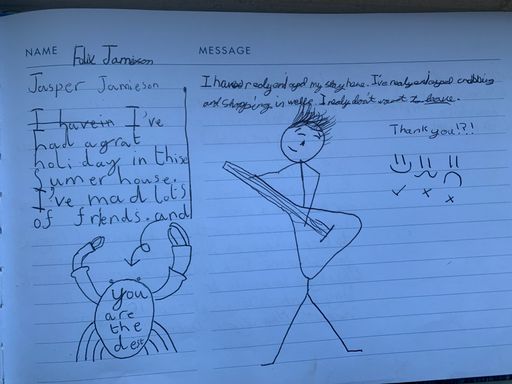 NAME
Felix Jamieson
MESSAGE
Jasper Jamieson
I have realy enjoyed my stay here. I've realy enjoyed crabbing
and staying in wells. I realy don't want to leave.
I havein I've
had a grat
holi day in this
Sumer house.
I've mad lots
of friends. and
Thank you!?!
You
are
the
dest